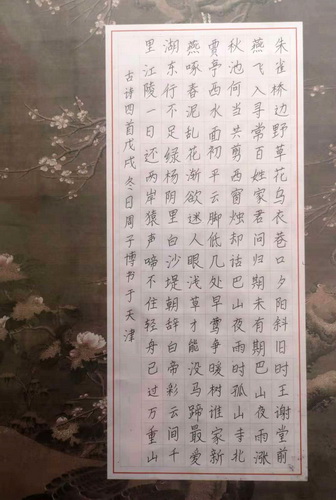 朱雀桥边野草花乌衣巷口夕阳斜旧时王谢堂前
燕飞入寻常百姓家君问归期未有期巴山夜雨涨
秋池何当共剪西窗烛却话巴山夜雨时孤山寺北
贾亭西水面初平云脚低几处早莺争暖树谁家新
燕啄春泥乱花渐欲迷人眼浅草才能没马蹄最爱
湖东行不足绿杨阴里白沙堤朝辞白帝彩云间千
里江陵一日还两岸猿声啼不住轻舟已过万重山
古诗四首戊戌冬日周子博书于天津